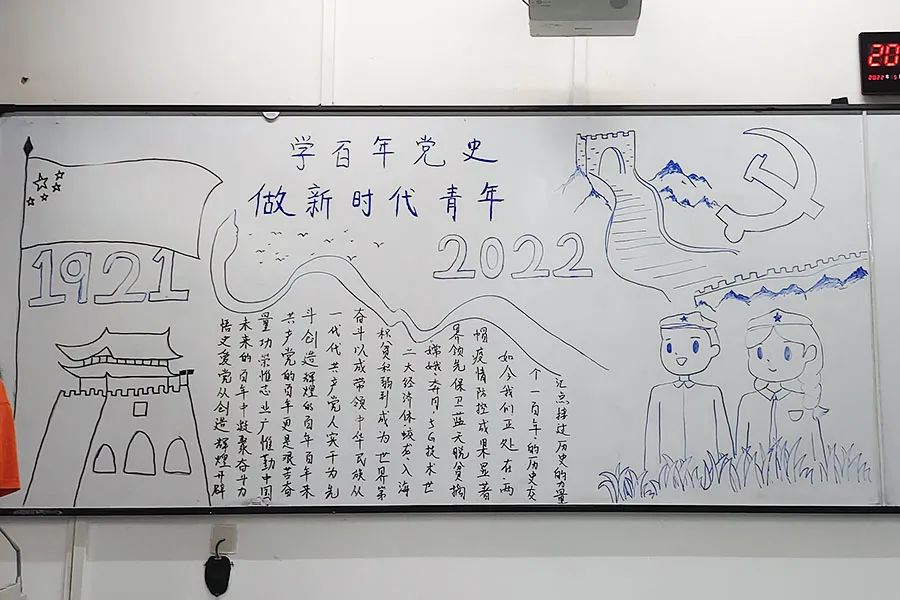 学百年党史
做新时代青年
1921
2022
悟史爱党从创造辉煌开辟
未来的百年中凝聚奋斗力
量功崇惟志业广惟勤中国
共产党的百年更是艰苦奋
斗创造辉煌的百年百年来
一代代共产党人实干为先
奋斗以成带领中华民族从
积贫积弱到成为世界第
二大经济体,蛟龙入海
嫦娥奔月,5G技术世
界领先保卫蓝天脱贫摘
帽疫情防控成果显著
如今我们正处在两
个一百年的历史交
汇点接过历史的力量
20
2022年